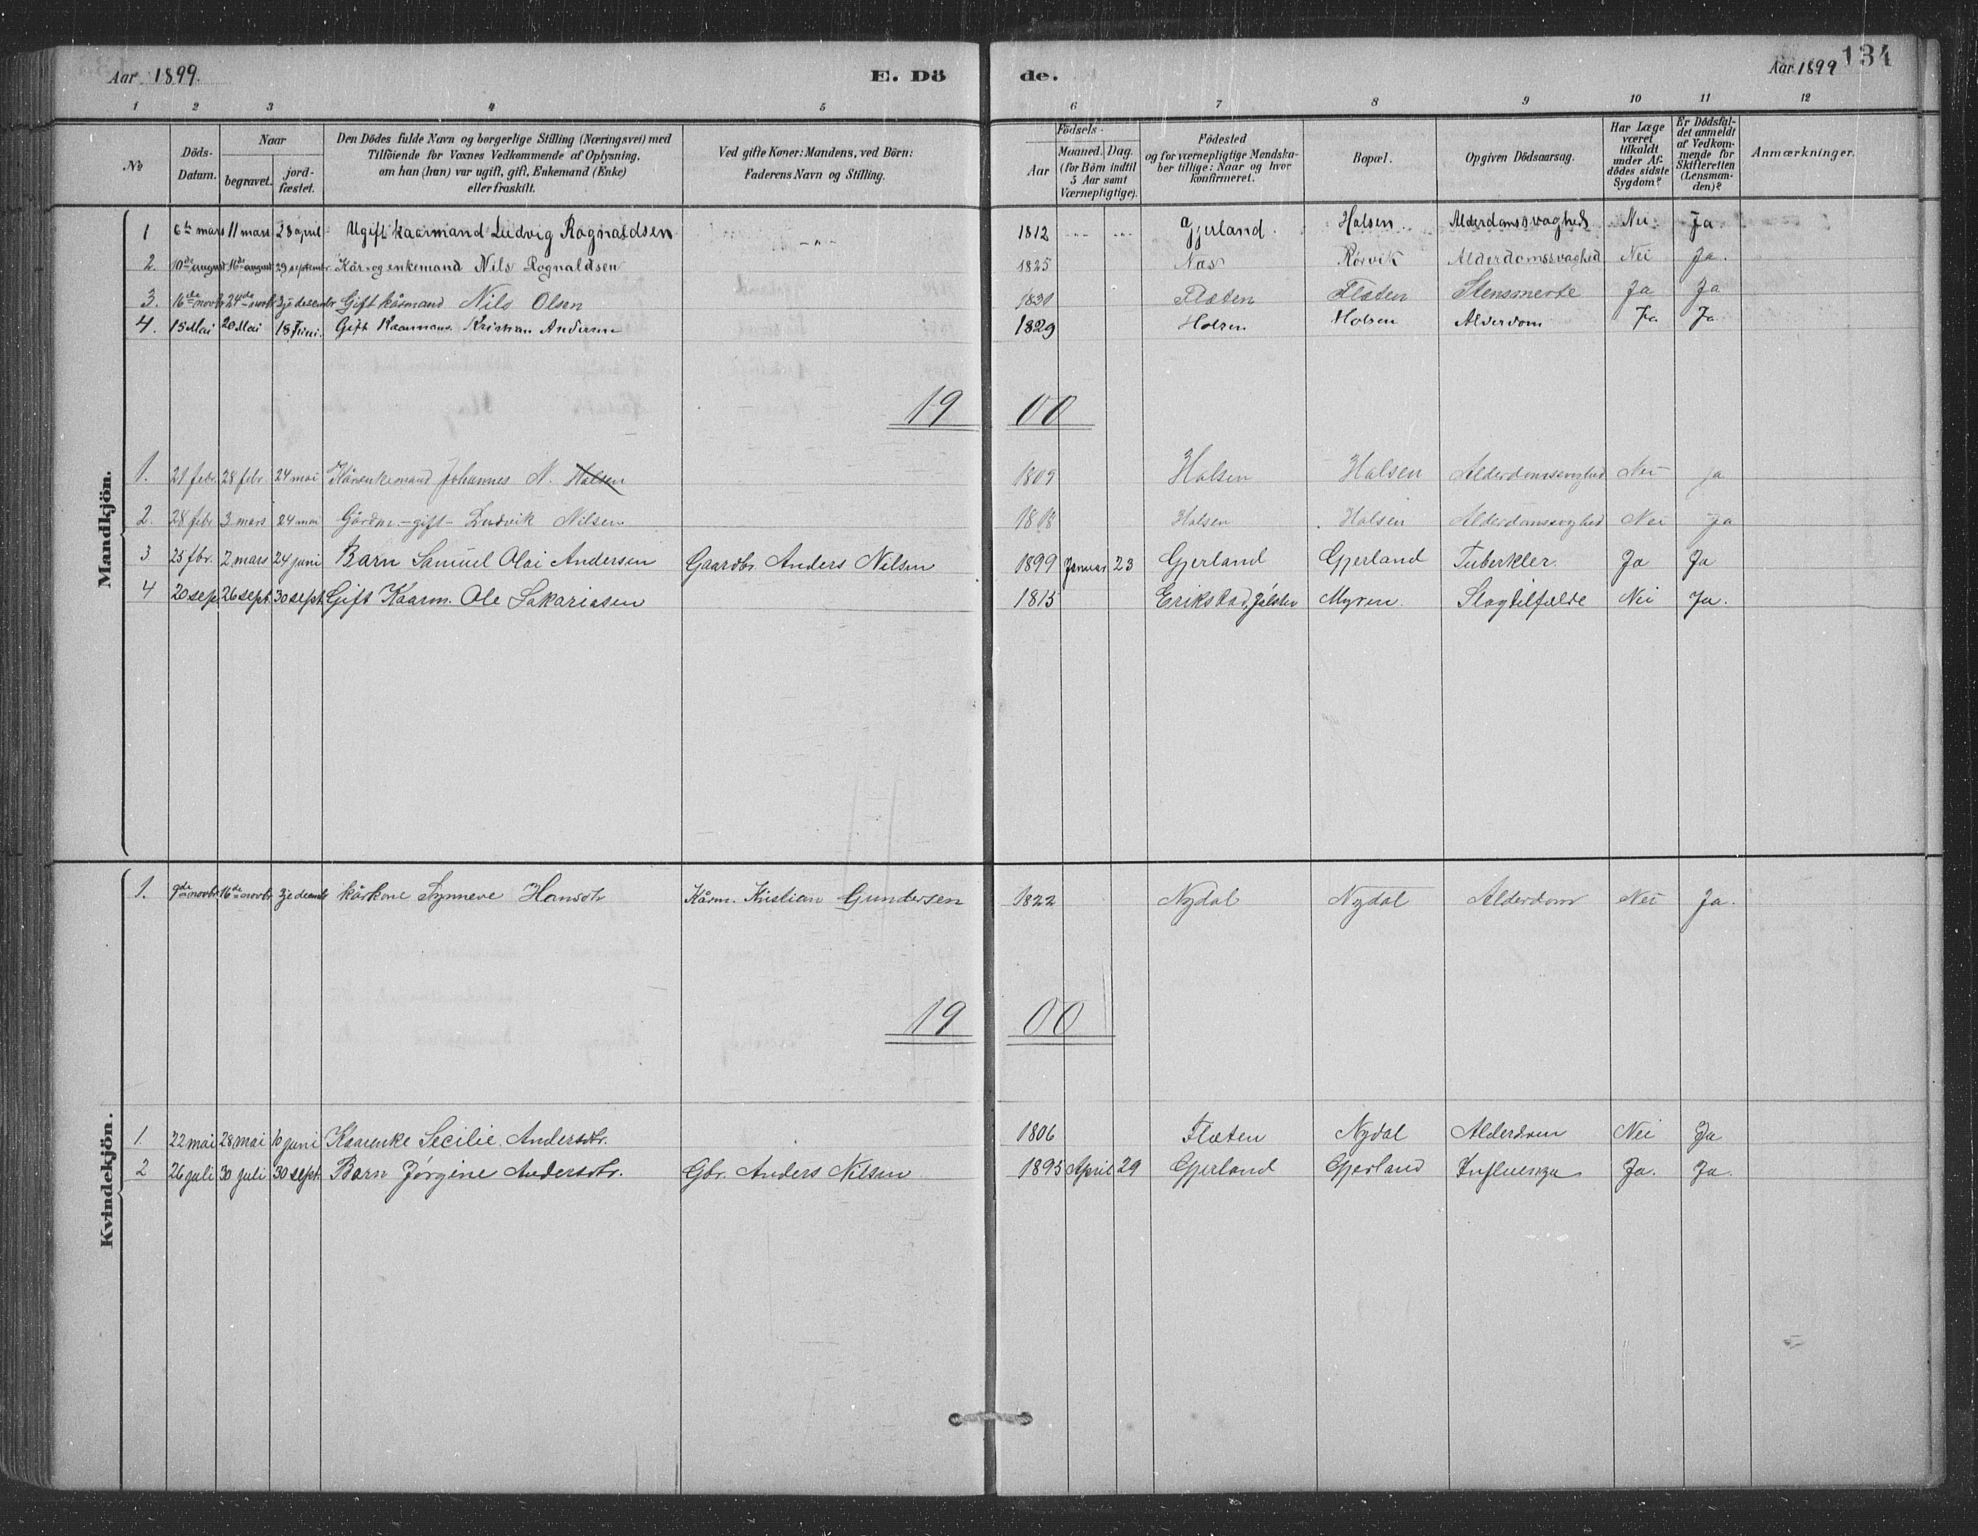 Aar 1899. E. Dö de. Aar 1899 134
1 2 3 4 5 6 7 8 9 10 11 12
No Döds-Datum. Naar begravet. jord-fæstet. Den Dödes fulde Navn og borgerlige Stilling (Næringsvei) med Tilföiende for Voxnes Vedkommende af Oplysning, om han (hun) var ugift, gift, Enkemand (Enke) eller fraskilt. Ved gifte Koner: Mandens, ved Börn: Faderens Navn og Stilling. Födsels- Aar Maaned. Dag. (for Börn indtil 5 Aar samt Værnepligtige). Födested og for værnepligtige Mandskaber tillige: Naar og hvor konfirmeret. Bopæl. Opgiven Dödsaarsag. Har Læge været tilkaldt under Afdödes sidste Sygdom? Er Dödsfaldet anmeldt af Vedkommende for Skifteretten (Lensmanden)? Anmærkninger.
Mandkjön.
1 6te mars 11 mars 28 april Ugift kaarmand Ludvig Ragnaldsen -"- 1812 ... ... Gjerland. Halsen Alderdomssvaghed Nei Ja
2. 10de august 16de august 29 septembr Kår- og enkemand Nils Rognaldsen 1825 Nas Rørvik Alderdomssvaghed Nei Ja.
3. 16de novbr 24de novbr 3je decembr Gift kåsmand Nils Olsen 1831 Flæten Flæten Stensmerte Ja Ja
4. 15 Mai 20 Mai 18 Juni. Gift Kaarmand Kristian Andersen 1829 Holsen Holsen Alderdom Ja Ja.
19 00
1. 21 febr. 28 febr. 24 mai Kårenkemand Johannes N. Halsen 1809 Halsen Halsen Alderdomssvaghed Nei ja
2. 28 febr 3 mars 24 mai Gårdm. - gift - Ludvik Nilsen 1818 Halsen Halsen Alderdomssvaghed Nei Ja
3 25 fbr. 2 mars 24 juni Barn Samuel Olai Andersen Gaardbr. Anders Nilsen 1899 Januar 23 Gjerland Gjerland Tuberkler. Ja Ja
4 20 sept. 26 sept. 30 sept. Gift Kaarm. Ole Sakariasen 1815 Erikstad, Jølster Myren. Slagtilfælde Nei Ja.
Kvindekjön.
1. 9de novbr 16de novbr 3je decmbr kårkone Synneve Hansdtr Kårm. Kristian Gundersen 1822 Nydal Nydal Alderdom Nei Ja.
19 00
1. 22 mai 28 mai 10 juni Kaarenke Secilie Andersdtr. 1806 Flæten Nydal Alderdom Nei Ja
2 26 juli 30 juli 30 sept. Barn Jørgine Andersdtr. Gbr. Anders Nilsen 1895 April 29 Gjerland Gjerland Influenza Ja. Ja.